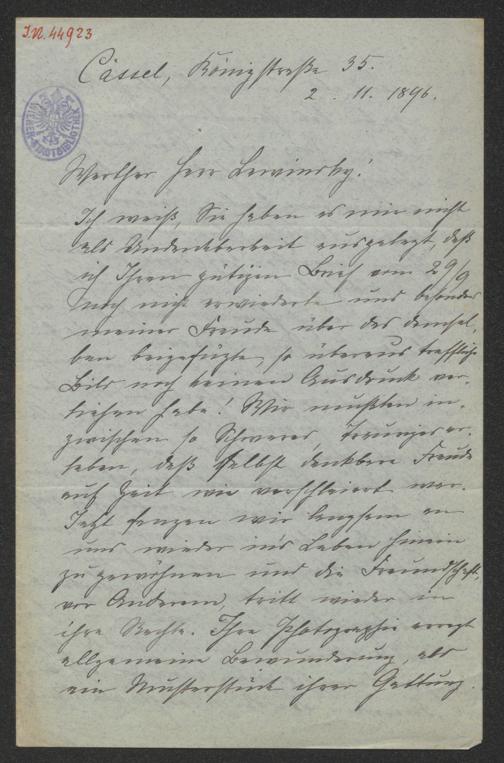 I.N. 44923
WIENER STADTBIBLIOTHEK
Cassel, Königstraße 35.
2. 11. 1896.
Werther Herr Lewinsky!
Ich weiß, Sie haben es mir nicht
als Undankbarkeit ausgelegt, daß
ich Ihren gütigen Brief vom 29/9
noch nicht erwiederte und besonders
meiner Freude über das demsel-
ben beigefügte, so überaus treffliche
Bild noch keinen Ausdruck ver-
liehen habe! Wir mußten in-
zwischen so Schweres, Trauriges er-
leben, daß selbst dankbare Freude
auf Zeit wie verschleiert war.
Jetzt fangen wir langsam an
uns wieder in's Leben hinein
zu gewöhnen und die Freundschaft,
vor Anderem, tritt wieder in
ihre Rechte. Ihre Photographie erregt
allgemeine Bewunderung, als
ein Musterstück ihrer Gattung.